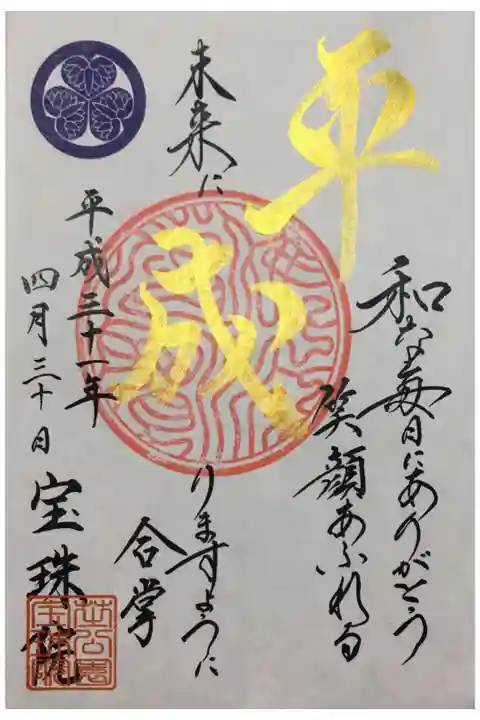 平和な毎日にありがとう
笑顔あふれる
未来に成りますように
合掌
平成三十一年
四月三十日
宝珠院